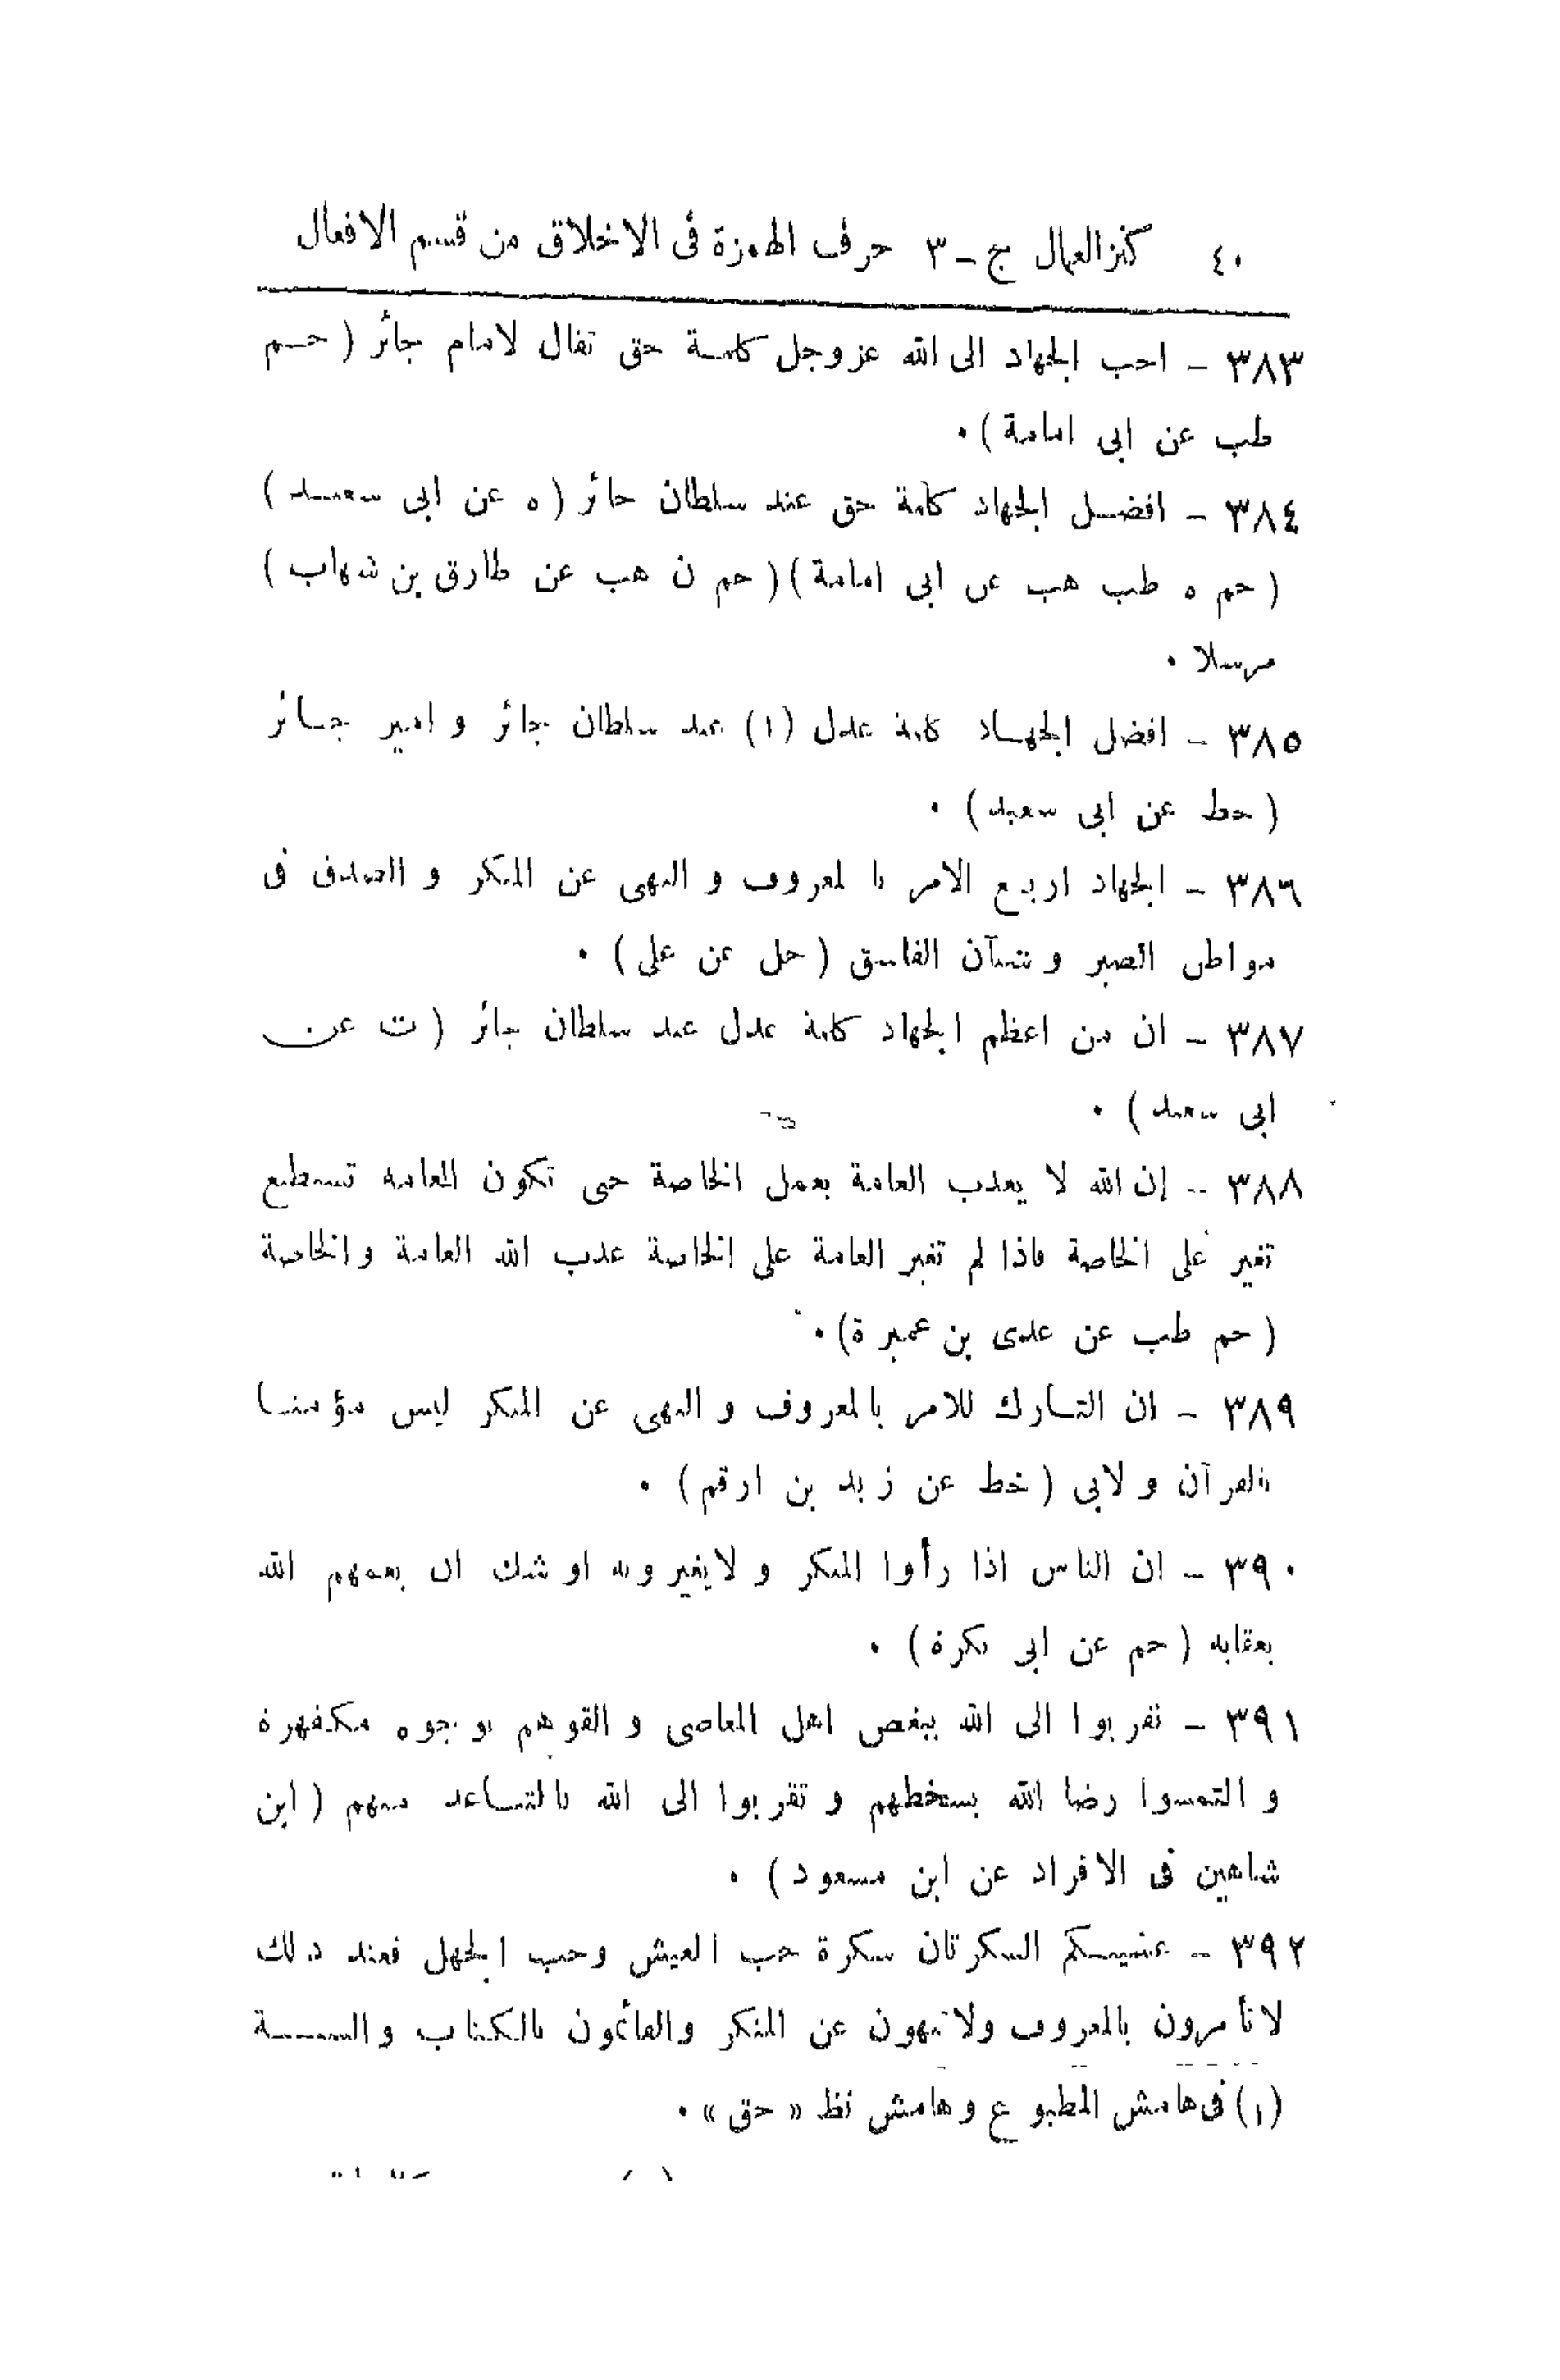 ٤٠ كنز العمال ج - ٣ حرف الهمزة فى الاخلاق من قسم الافعال
٣٨٣ - احب الجهاد الى الله عز وجل كلمة حق تقال لامام جائر ( حم
طب عن ابى امامة ) ٠
٣٨٤ - افضل الجهاد كلمة حق عند سلطان جائر ( ه عن ابى سعيد )
( حم ه طب هب عن ابى امامة ) ( حم ن هب عن طارق بن شهاب )
مرسلا ٠
٣٨٥ - افضل الجهاد كلمة عدل (١) عند سلطان جائر و امير جائر
( خط عن ابى سعيد ) ٠
٣٨٦ - الجهاد اربع الامر بالمعروف و النهى عن المنكر و الصدق فى
مواطن الصبر و شنآن الفاسق ( حل عن على ) ٠
٣٨٧ - ان من اعظم الجهاد كلمة عدل عند سلطان جائر ( ت عن
ابى سعيد ) ٠
٣٨٨ - إن الله لا يعذب العامة بعمل الخاصة حتى تكون العامة تستطيع
تغير على الخاصة فاذا لم تغير العامة على الخاصة عذب الله العامة و الخاصة
( حم طب عن عدى بن عميرة ) ٠
٣٨٩ - ان التارك للامر بالمعروف و النهى عن المنكر ليس مؤمنا
بالقرآن و لابى ( خط عن زيد بن ارقم ) ٠
٣٩٠ - ان الناس اذا رأوا المنكر و لايغيرونه اوشك ان يعمهم الله
بعقابه ( حم عن ابى بكرة ) ٠
٣٩١ - تقربوا الى الله ببغض اهل المعاصى و القوهم بوجوه مكفهرة
و التمسوا رضا الله بسخطهم و تقربوا الى الله بالتباعد منهم ( ابن
شاهين فى الافراد عن ابن مسعود ) ٠
٣٩٢ - غشيتكم السكرتان سكرة حب العيش وحب الجهل فعند ذلك
لا تأمرون بالمعروف ولا تنهون عن المنكر والقائمون بالكتاب والسنة
(١) فى هامش المطبوع و هامش نظ « حق » ٠